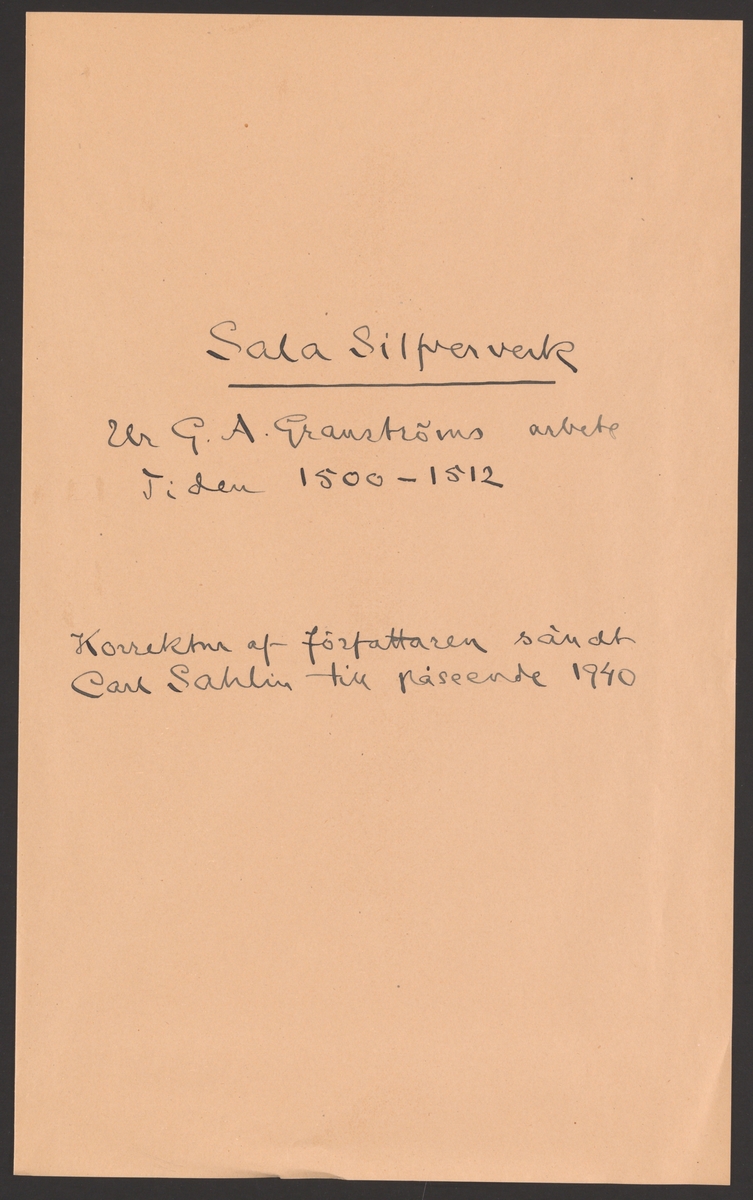 Sala Silfververk
Ur G. A. Granströms arbete
Tiden 1500-1512
Korrektur af författaren sändt
Carl Sahlin till påseende 1940